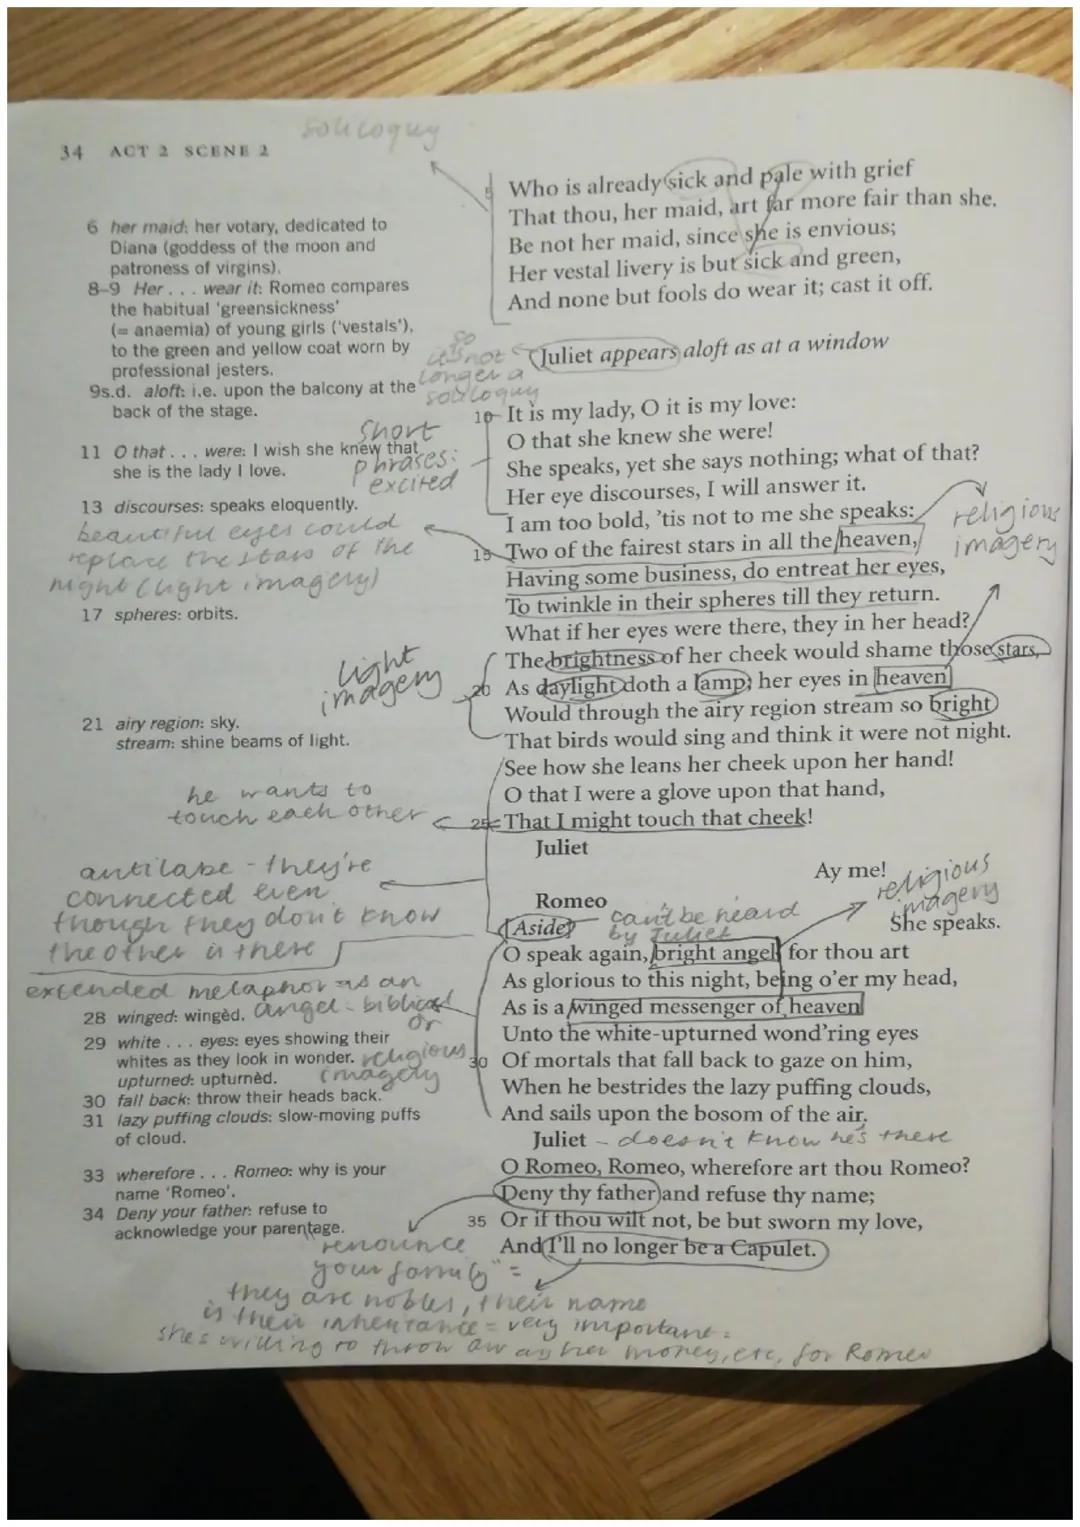 soliloquy
34 ACT 2 SCENE 2
5 Who is already sick and pale with grief
That thou, her maid, art far more fair than she.
Be not her maid, since she is envious;
Her vestal livery is but sick and green,
And none but fools do wear it; cast it off.
6 her maid: her votary, dedicated to
Diana (goddess of the moon and
patroness of virgins).
8–9 Her . . . wear it: Romeo compares
the habitual 'greensickness'
(= anaemia) of young girls ('vestals'),
to the green and yellow coat worn by
professional jesters.
9s.d. aloft: i.e. upon the balcony at the
back of the stage.
so
it's not
longer a
soliloquy
Juliet appears aloft as at a window
10 It is my lady, O it is my love:
O that she knew she were!
She speaks, yet she says nothing; what of that?
Her eye discourses, I will answer it.
I am too bold, 'tis not to me she speaks:
15 Two of the fairest stars in all the heaven,
Having some business, do entreat her eyes,
To twinkle in their spheres till they return.
What if her eyes were there, they in her head?
The brightness of her cheek would shame those stars,
20 As daylight doth a lamp; her eyes in heaven
Would through the airy region stream so bright
That birds would sing and think it were not night.
See how she leans her cheek upon her hand!
O that I were a glove upon that hand,
25 That I might touch that cheek!
short
phrases:
excited
11 O that . . . were: I wish she knew that
she is the lady I love.
13 discourses: speaks eloquently.
beautiful eyes could
replace the stars of the
night (light imagery)
religious
imagery
17 spheres: orbits.
light
imagery
21 airy region: sky.
stream: shine beams of light.
he wants to
touch each other
Juliet
Ay me!
antilabe - they're
connected even
though they don't know
the other is there
Romeo
religious
imagery
She speaks.
[Aside] can't be heard
by Juliet
O speak again, bright angel, for thou art
As glorious to this night, being o'er my head,
As is a winged messenger of heaven
Unto the white-upturned wond'ring eyes
30 Of mortals that fall back to gaze on him,
When he bestrides the lazy puffing clouds,
And sails upon the bosom of the air.
extended metaphor as an
angel - biblical
or
religious
imagery
28 winged: wingèd.
29 white . . . eyes: eyes showing their
whites as they look in wonder.
upturned: upturnèd.
30 fall back: throw their heads back.
31 lazy puffing clouds: slow-moving puffs
of cloud.
Juliet - doesn't know he's there
O Romeo, Romeo, wherefore art thou Romeo?
Deny thy father and refuse thy name;
35 Or if thou wilt not, be but sworn my love,
And I'll no longer be a Capulet.
33 wherefore . . . Romeo: why is your
name 'Romeo'.
34 Deny your father: refuse to
acknowledge your parentage.
"renounce
your family" =
they are nobles, their name
is their inheritance = very important =
she's willing to throw away her money, etc, for Romeo